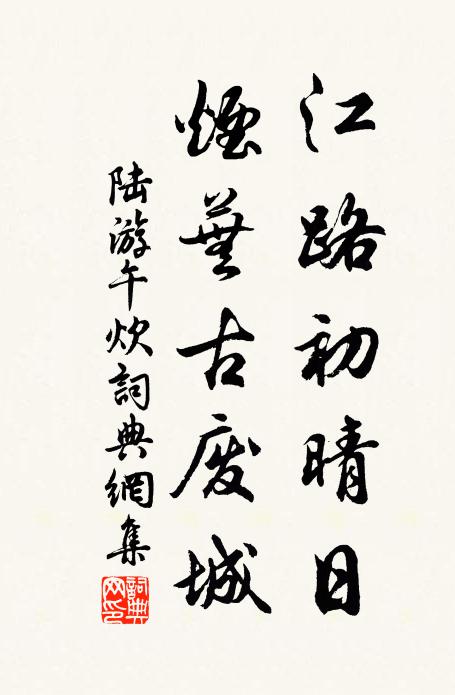 江路初晴日
煙蕪古废城
陆游午炊詞典網集
詞典网印